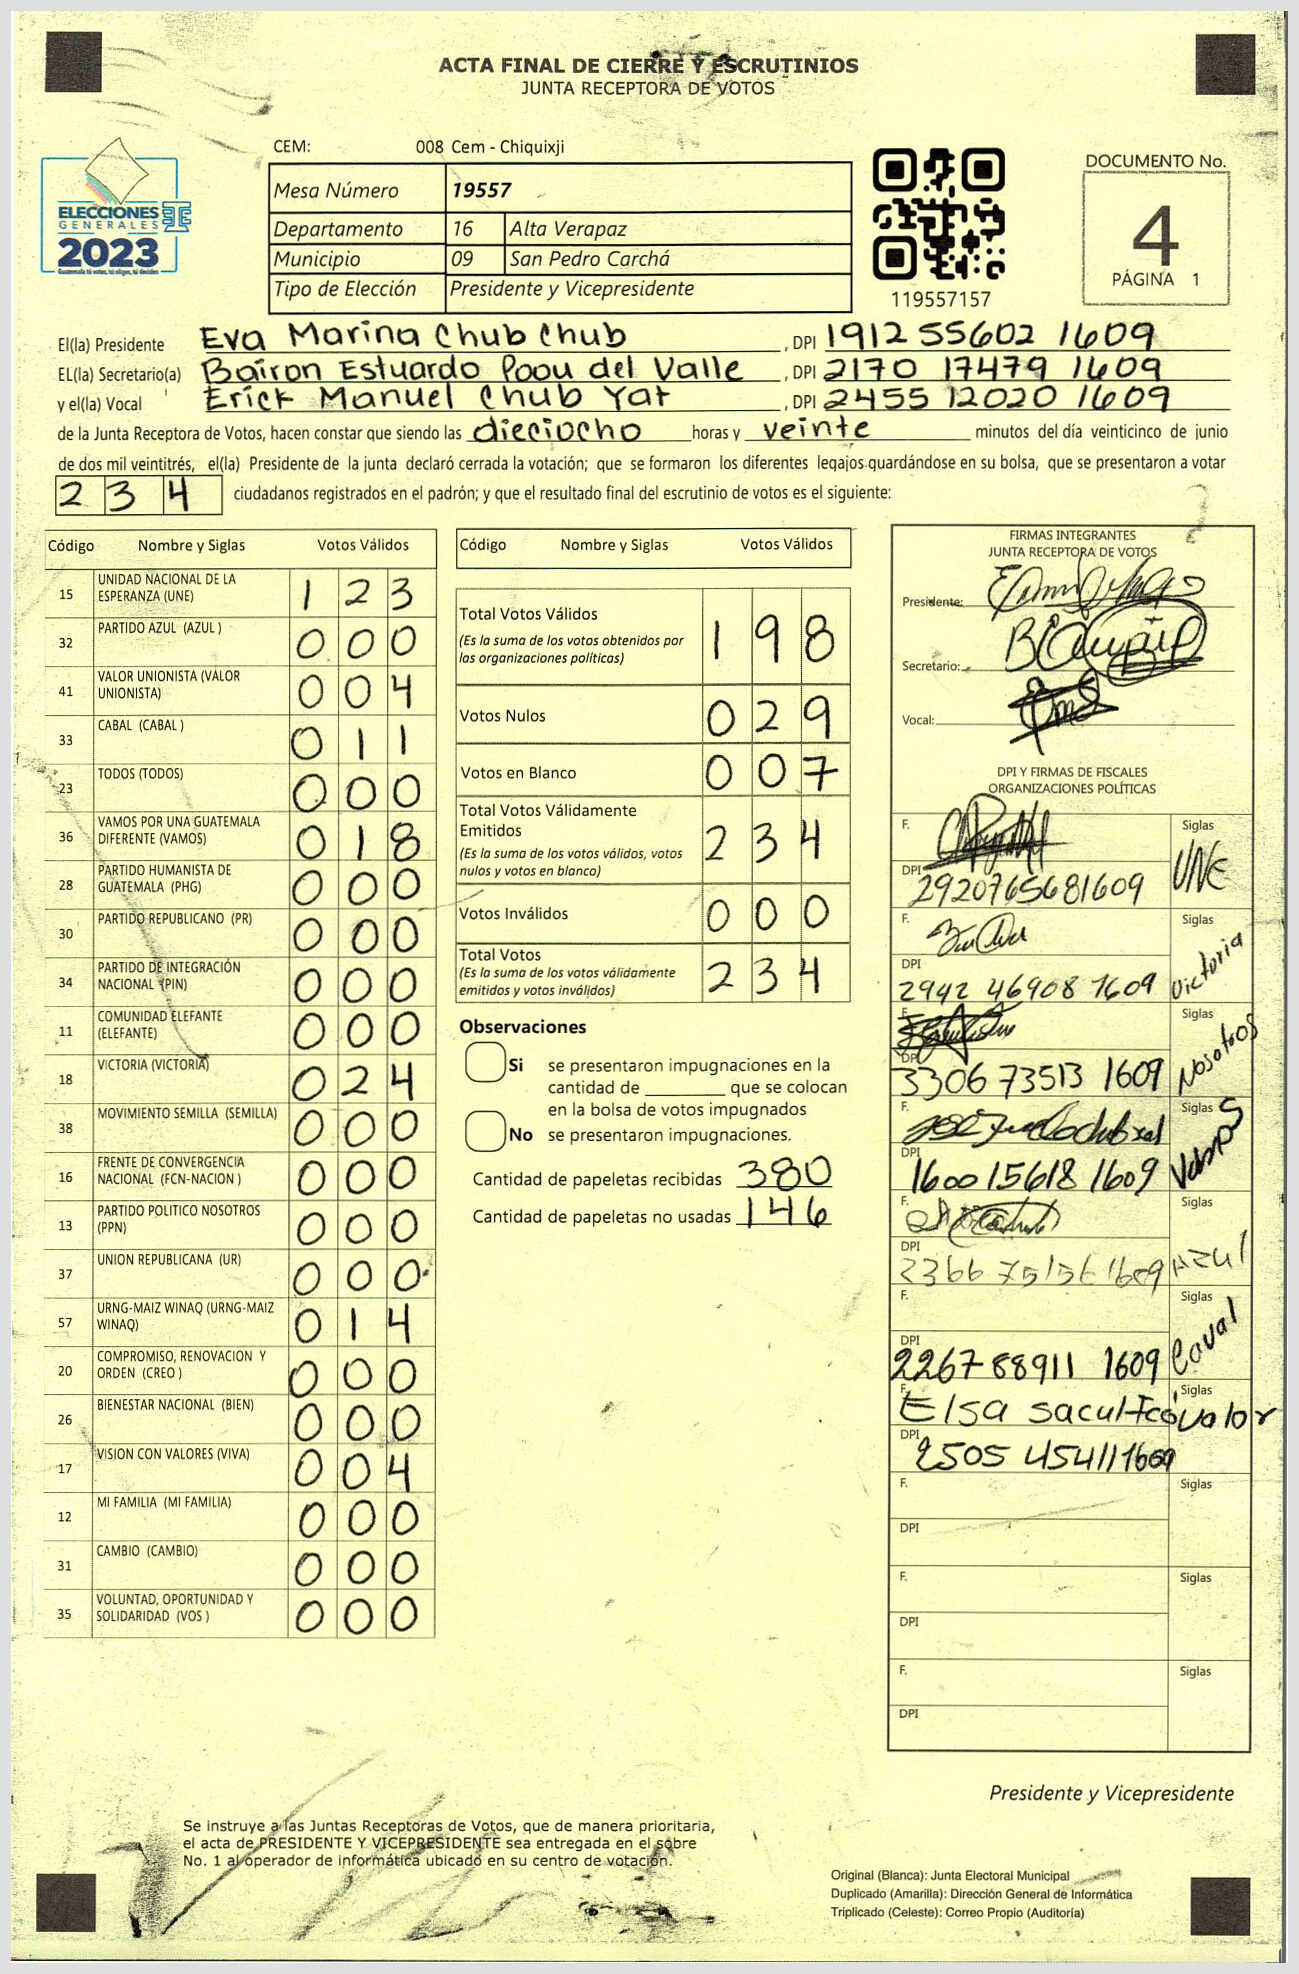 ACTA FINAL DE CIERRE Y ESCRUTINIOS
JUNTA RECEPTORA DE VOTOS
CEM: 008 Cem - Chiquixji
ELECCIONES
GENERALES
2023
Guatemala tú votas, tú eliges, tú decides
Mesa Número 19557
Departamento 16 Alta Verapaz
Municipio 09 San Pedro Carchá
Tipo de Elección Presidente y Vicepresidente
119557157
DOCUMENTO No.
4
PÁGINA 1
El(la) Presidente Eva Marina Chub Chub, DPI 1912 55602 1609
EL(la) Secretario(a) Bairon Estuardo Poou del Valle, DPI 2170 17479 1609
y el(la) Vocal Erick Manuel Chub Yat, DPI 2455 12020 1609
de la Junta Receptora de Votos, hacen constar que siendo las dieciocho horas y veinte minutos del día veinticinco de junio
de dos mil veintitrés, el(la) Presidente de la junta declaró cerrada la votación; que se formaron los diferentes legajos guardándose en su bolsa, que se presentaron a votar
2 3 4 ciudadanos registrados en el padrón; y que el resultado final del escrutinio de votos es el siguiente:
Código Nombre y Siglas Votos Válidos
15 UNIDAD NACIONAL DE LA ESPERANZA (UNE) 1 2 3
32 PARTIDO AZUL (AZUL ) 0 0 0
41 VALOR UNIONISTA (VALOR UNIONISTA) 0 0 4
33 CABAL (CABAL ) 0 1 1
23 TODOS (TODOS) 0 0 0
36 VAMOS POR UNA GUATEMALA DIFERENTE (VAMOS) 0 1 8
28 PARTIDO HUMANISTA DE GUATEMALA (PHG) 0 0 0
30 PARTIDO REPUBLICANO (PR) 0 0 0
34 PARTIDO DE INTEGRACIÓN NACIONAL (PIN) 0 0 0
11 COMUNIDAD ELEFANTE (ELEFANTE) 0 0 0
18 VICTORIA (VICTORIA) 0 2 4
38 MOVIMIENTO SEMILLA (SEMILLA) 0 0 0
16 FRENTE DE CONVERGENCIA NACIONAL (FCN-NACION ) 0 0 0
13 PARTIDO POLITICO NOSOTROS (PPN) 0 0 0
37 UNION REPUBLICANA (UR) 0 0 0
57 URNG-MAIZ WINAQ (URNG-MAIZ WINAQ) 0 1 4
20 COMPROMISO, RENOVACION Y ORDEN (CREO ) 0 0 0
26 BIENESTAR NACIONAL (BIEN) 0 0 0
17 VISION CON VALORES (VIVA) 0 0 4
12 MI FAMILIA (MI FAMILIA) 0 0 0
31 CAMBIO (CAMBIO) 0 0 0
35 VOLUNTAD, OPORTUNIDAD Y SOLIDARIDAD (VOS ) 0 0 0
Código Nombre y Siglas Votos Válidos
Total Votos Válidos 1 9 8
(Es la suma de los votos obtenidos por
las organizaciones políticas)
Votos Nulos 0 2 9
Votos en Blanco 0 0 7
Total Votos Válidamente
Emitidos 2 3 4
(Es la suma de los votos válidos, votos
nulos y votos en blanco)
Votos Inválidos 0 0 0
Total Votos 2 3 4
(Es la suma de los votos válidamente
emitidos y votos inválidos)
Observaciones
Si se presentaron impugnaciones en la
cantidad de ________ que se colocan
en la bolsa de votos impugnados
No se presentaron impugnaciones.
Cantidad de papeletas recibidas 380
Cantidad de papeletas no usadas 146
FIRMAS INTEGRANTES
JUNTA RECEPTORA DE VOTOS
Presidente:
Secretario:
Vocal:
DPI Y FIRMAS DE FISCALES
ORGANIZACIONES POLÍTICAS
F. Siglas UNE
DPI 2920765681609
F. Siglas Victoria
DPI 2942 46908 1609
F. Siglas Nosotros
DPI 3306 73513 1609
F. Siglas Vamos
DPI 1600 15618 1609
F. Siglas Azul
DPI 2366 75156 1609
F. Siglas Caval
DPI 2267 88911 1609
F. Elsa Siglas Valor
DPI 2505 45411 1609
F. Siglas
DPI
F. Siglas
DPI
F. Siglas
DPI
Presidente y Vicepresidente
Se instruye a las Juntas Receptoras de Votos, que de manera prioritaria,
el acta de PRESIDENTE Y VICEPRESIDENTE sea entregada en el sobre
No. 1 al operador de informática ubicado en su centro de votación.
Original (Blanca): Junta Electoral Municipal
Duplicado (Amarilla): Dirección General de Informática
Triplicado (Celeste): Correo Propio (Auditoría)